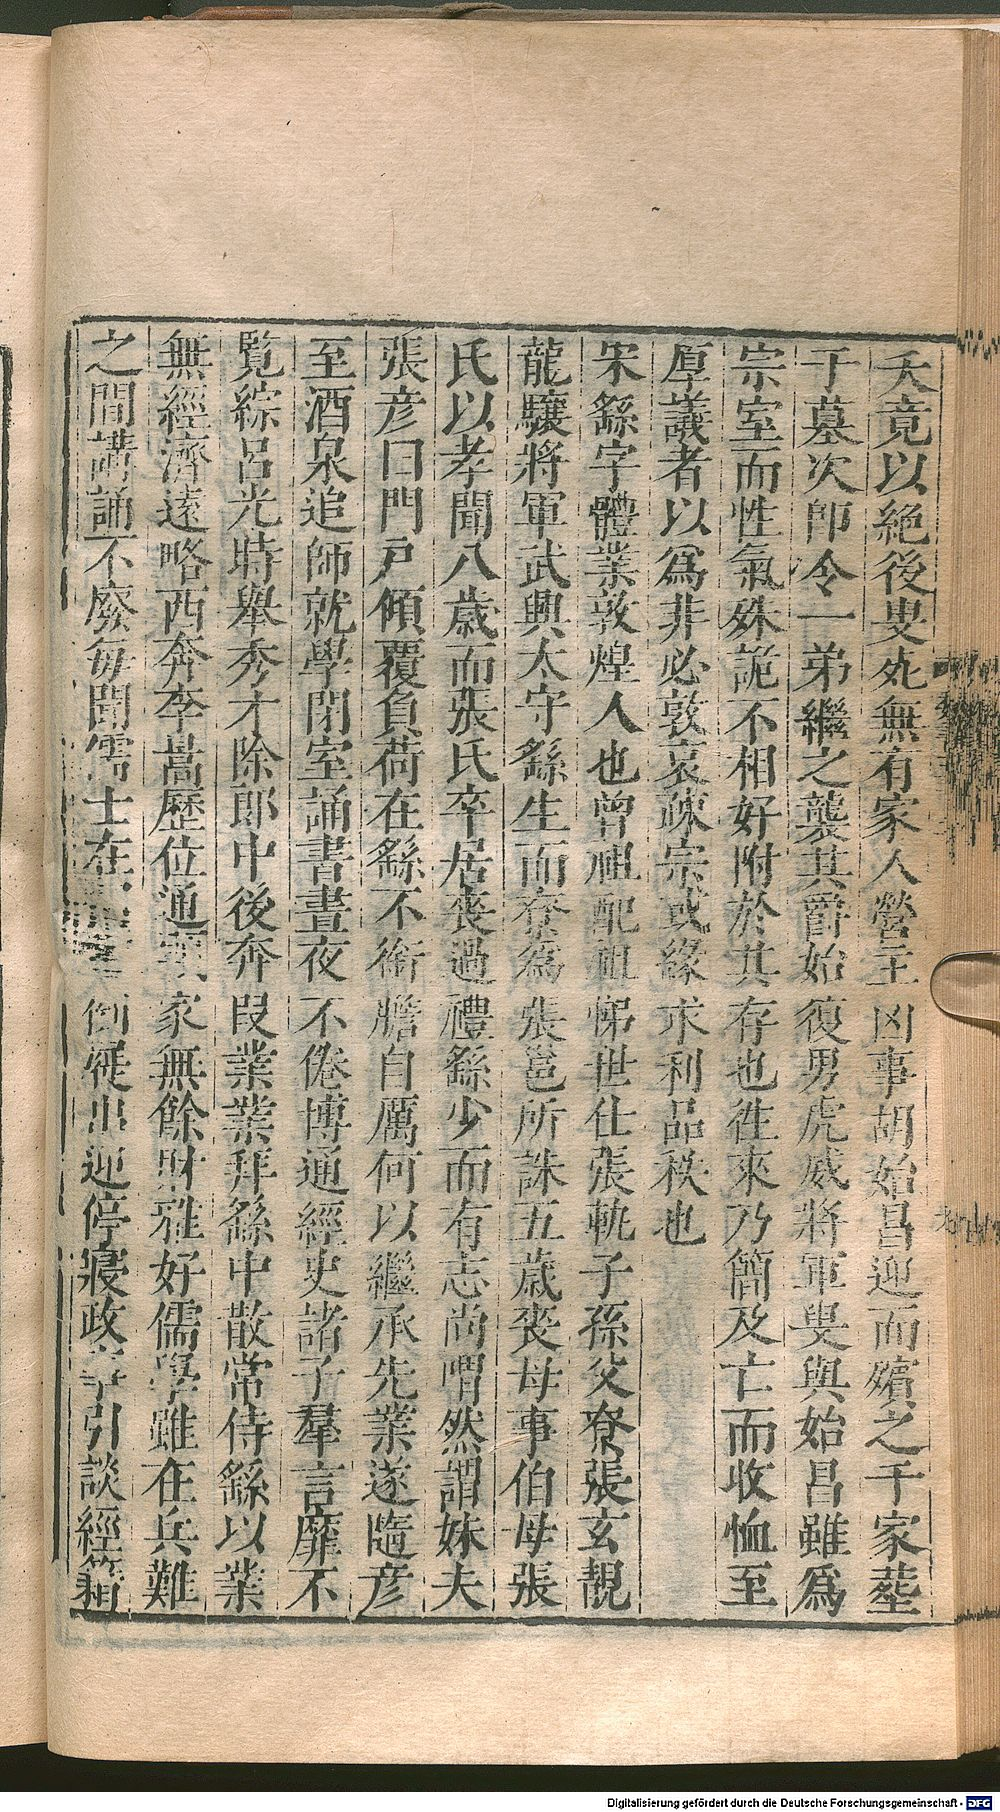 夭竟以絕後叟死無有家人營主凶事胡始昌迎而殯之于家葬
于墓次即令一弟繼之襲其爵始復男虎威將軍叟與始昌雖爲
宗室而性氣殊詭不相好附於其存也徃來乃簡及亡而收恤至
厚議者以爲非必敦哀疎宗或緣求利品秩也
宋繇字體業敦煌人也曾祖配祖悌世仕張軌子孫父寮張玄靚
龍驤將軍武興太守繇生而寮爲張邕所誅五歲喪母事伯母張
氏以孝聞八歲而張氏卒居喪過禮繇少而有志尚喟然謂妹夫
張彦曰門戶傾覆負荷在繇不銜膽自厲何以繼承先業遂隨彦
至酒泉追師就學閉室誦書晝夜不倦博通經史諸子羣言靡不
覽綜呂光時舉秀才除郎中後奔段業業拜繇中散常侍繇以業
無經濟遠略西奔李暠歷位通家無餘財雅好儒學雖在兵難
之間講誦不廢每聞儒士在倒屣出迎停寢政事引談經籍
Digitalisierung gefördert durch die Deutsche Forschungsgemeinschaft - DFG